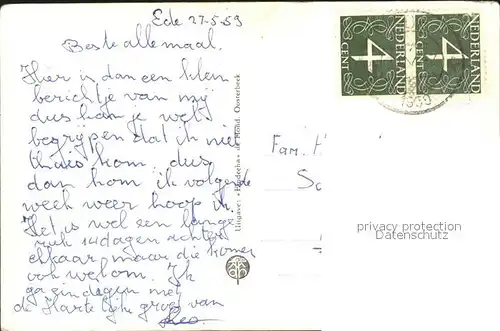 Ede 27-5-59
Beste allemaal.
Hier is dan een klein
berichtje van mij
dus kan je wel
begrijpen dat ik niet
thuis kom, dus
dan kom ik volgende
week weer hoop ik.
Het is wel een lang
ruk 14 dagen achter
elkaar maar die komen
ook wel om. Ik
ga eindigen met
de Hartelijke groet van
Uitgave: de Bothid. Oosterbeek
Fam.
4 CENT NEDERLAND
4 CENT NEDERLAND
privacy protection
Datenschutz